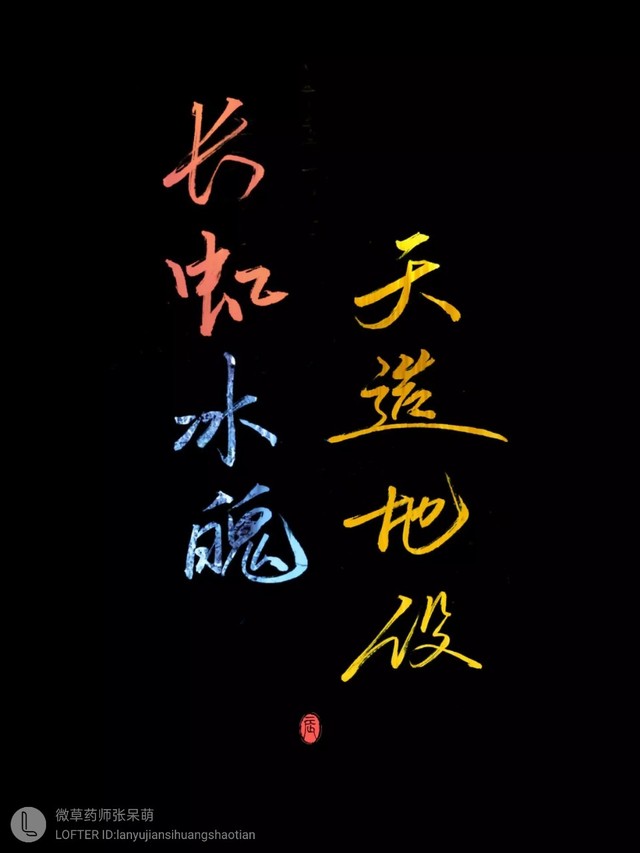 长虹冰魄
天造地设
微草药师张呆萌
LOFTER ID:lanyujiansihuangshaotian